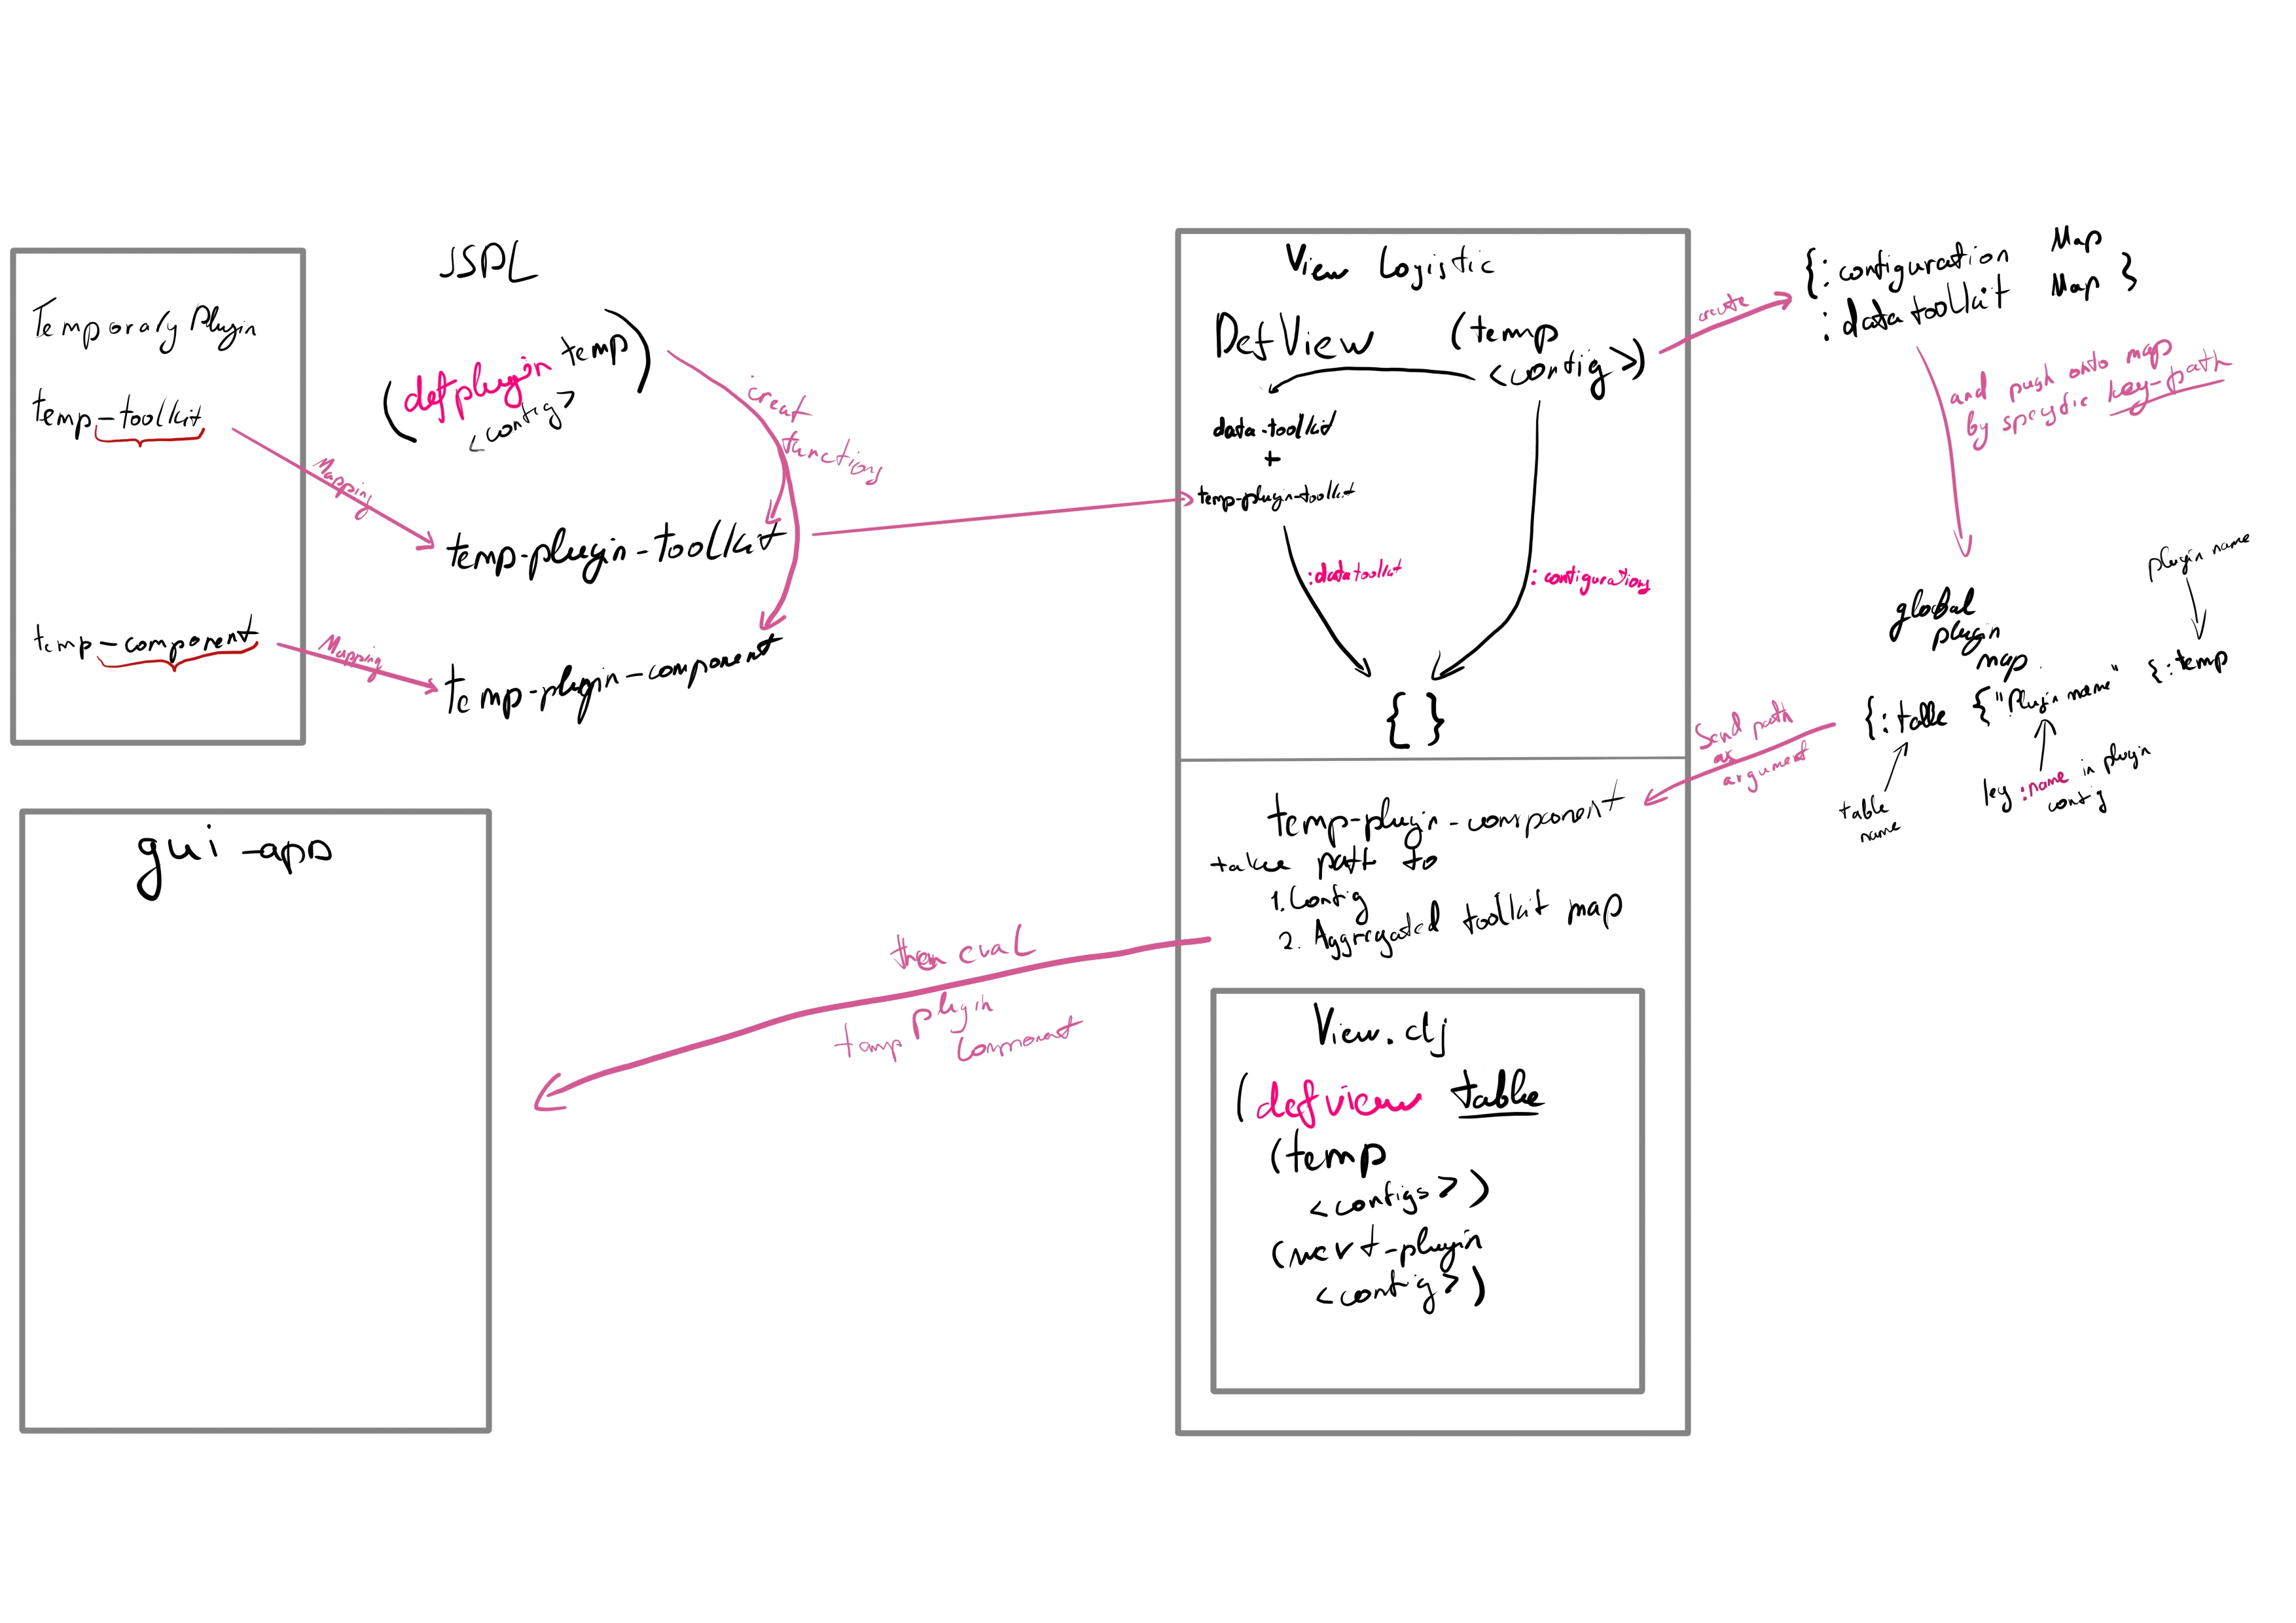 Temporary Plugin
temp-toolkit
temp-component
Mapping
Mapping
JSPL
(defplugin temp)
<config>
creat
functions
temp-plugin-toolkit
temp-plugin-component
View Logistic
DefView (temp
<config>)
data-toolkit
+
temp-plugin-toolkit
:datatoolkit
:configurations
{ }
create
{:configuration Map
:datatoolkit Map }
and push onto map
by specyfic key-path
plugin name
global
plugin
map
{:table {"Plugin name" {:temp
table
name
key :name in plugin
config
Send path
as
argument
temp-plugin-component
take path to
1. Config
2. Aggregated toolkit map
then eval
temp plugin
component
gui-app
View.clj
(defview table
(temp
<configs>)
(next-plugin
<config>)